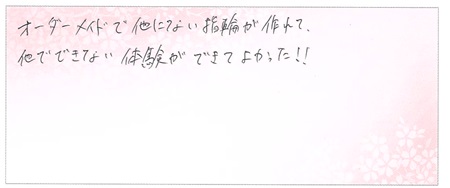 オーダーメイドで他にない指輪が作れて、
他でできない体験ができてよかった!!